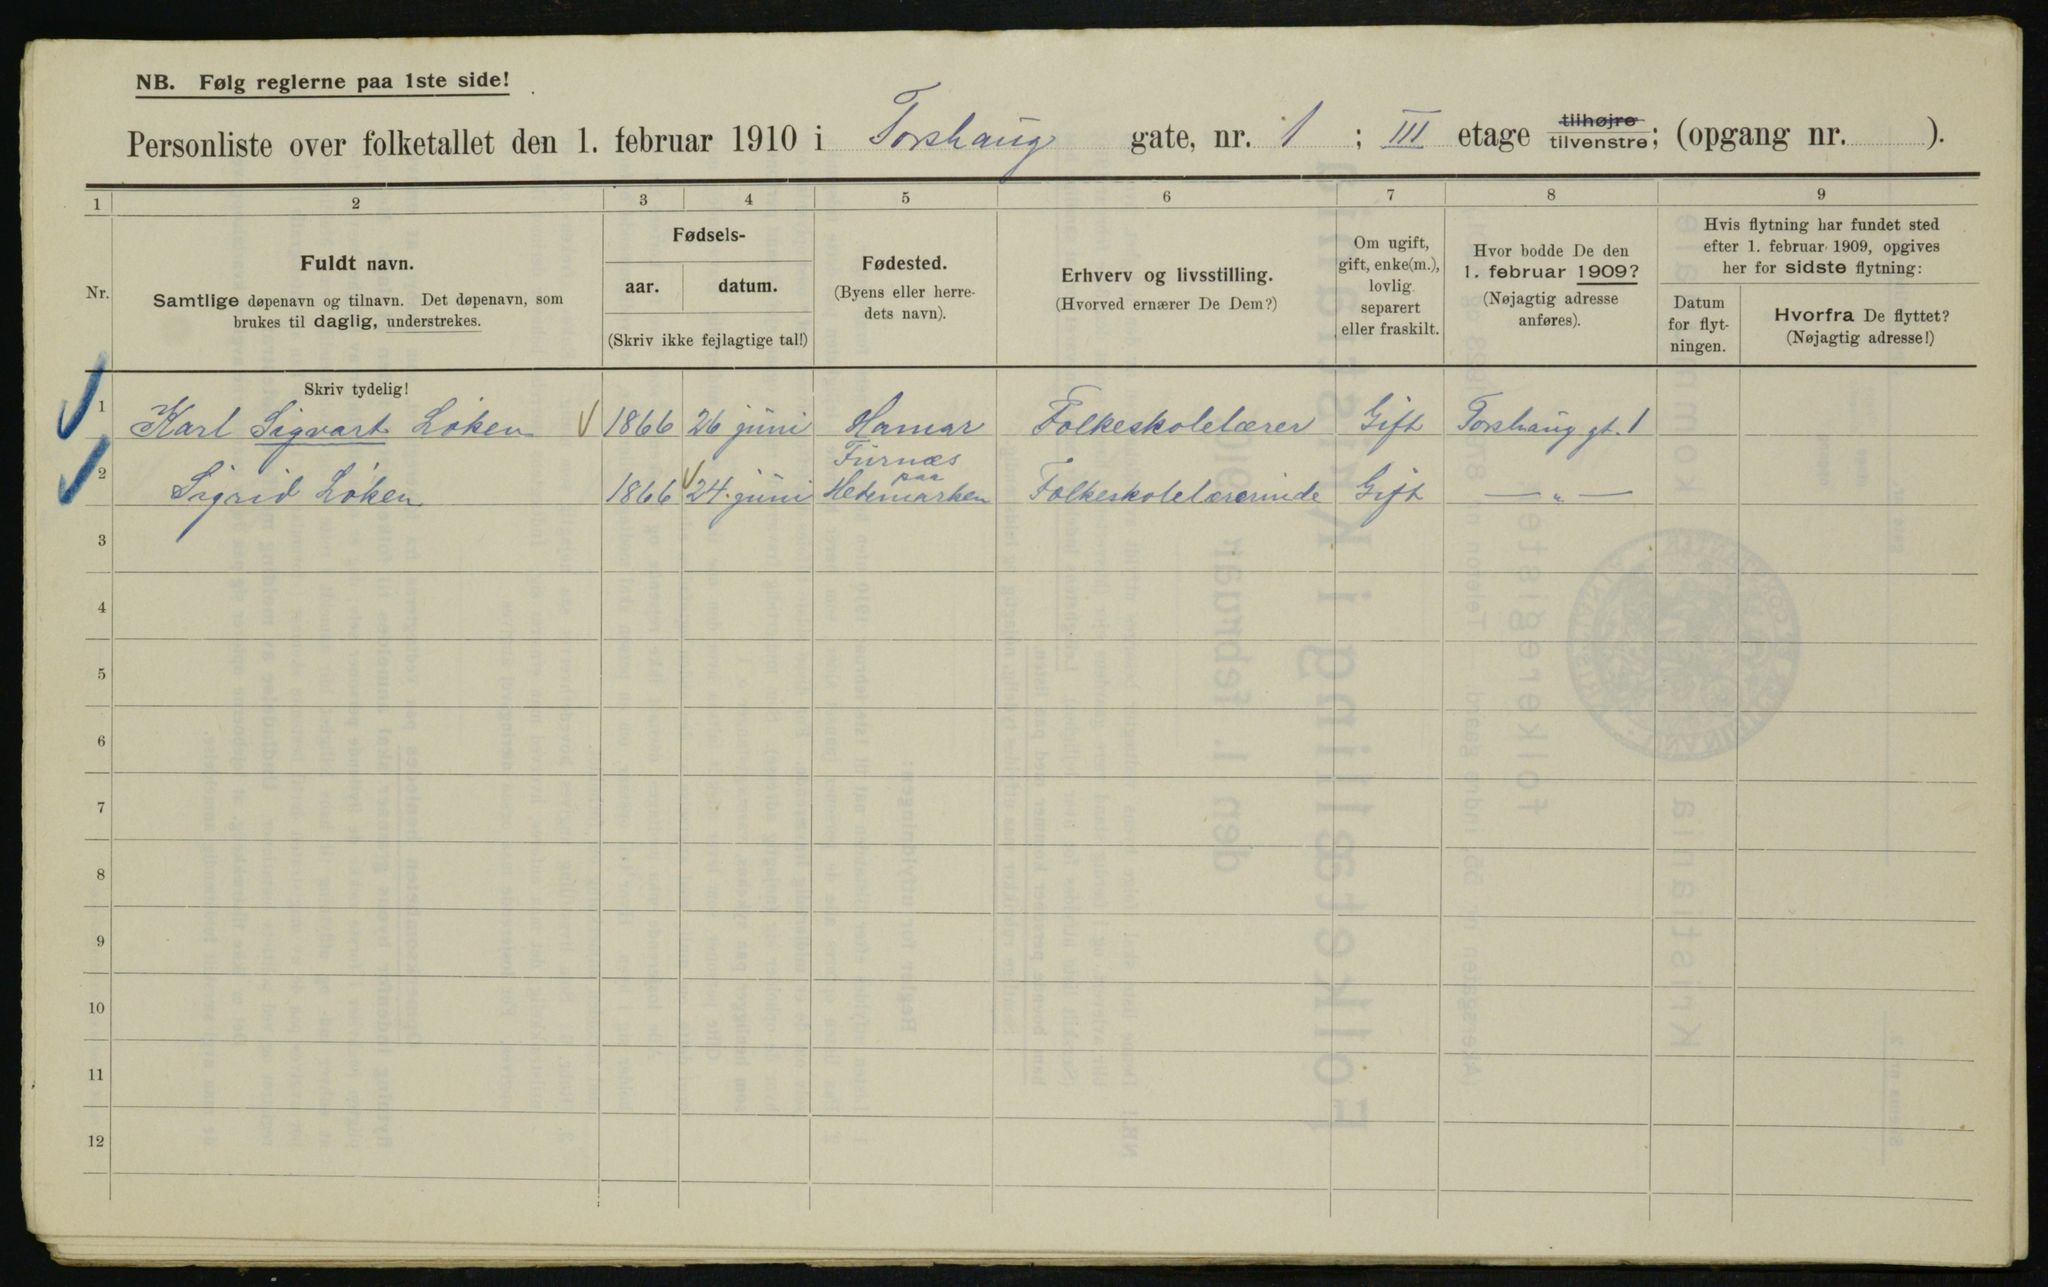 NB. Følg reglerne paa 1ste side!
Personliste over folketallet den 1. februar 1910 i Torshaug gate, nr. 1 ; III etage tilhøjre tilvenstre; (opgang nr. ).
1 2 3 4 5 6 7 8 9
Nr.
Fuldt navn.
Samtlige døpenavn og tilnavn. Det døpenavn, som
brukes til daglig, understrekes.
Fødsels-
aar. datum.
(Skriv ikke fejlagtige tal!)
Fødested.
(Byens eller herre-
dets navn).
Erhverv og livsstilling.
(Hvorved ernærer De Dem?)
Om ugift,
gift, enke(m.),
lovlig
separert
eller fraskilt.
Hvor bodde De den
1. februar 1909?
(Nøjagtig adresse
anføres).
Hvis flytning har fundet sted
efter 1. februar 1909, opgives
her for sidste flytning:
Datum
for flyt-
ningen.
Hvorfra De flyttet?
(Nøjagtig adresse!)
Skriv tydelig!
1 Karl Sigvart Løken 1866 26 juni Hamar Folkeskolelærer Gift Torshaug gt. 1
2 Sigrid Løken 1866 24. juni Furnæs paa Hedemarken Folkeskolelærerinde Gift — „ —
3
4
5
6
7
8
9
10
11
12